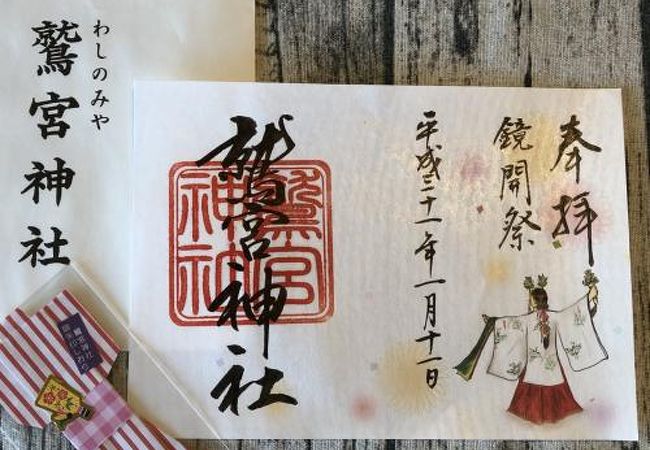 わしのみや
鷲宮神社
奉拝
鏡開祭
平成三十一年一月十一日
鷲宮神社
鷲宮
神社
鷲宮神社